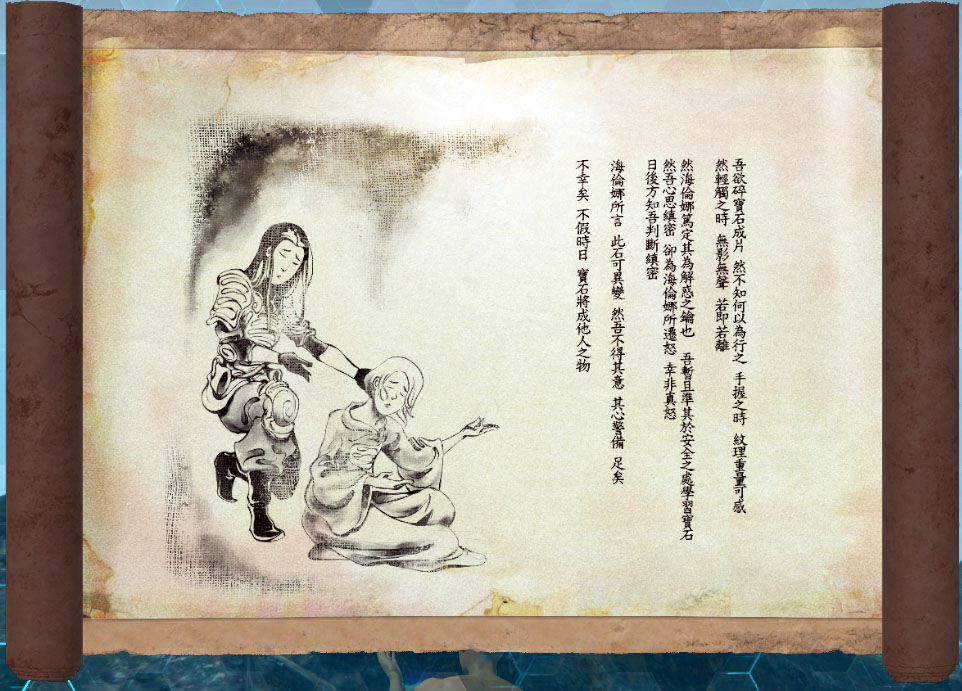 吾欲碎寶石成片 然不知何以為行之 手握之時 紋理重量可感
然輕觸之時 無影無聲 若即若離
然海倫娜篤定其為解惑之鑰也 吾暫且準其於安全之處學習寶石
然吾心思縝密 卻為海倫娜所遷怒 幸非真怒
日後方知吾判斷縝密
海倫娜所言 此石可異變 然吾不得其意 其心警備 足矣
不幸矣 不假時日 寶石將成他人之物